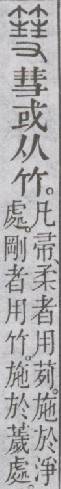 篲彗或从竹。
凡帚、柔者用茢。施於淨
處。剛者用竹。施於薉處。